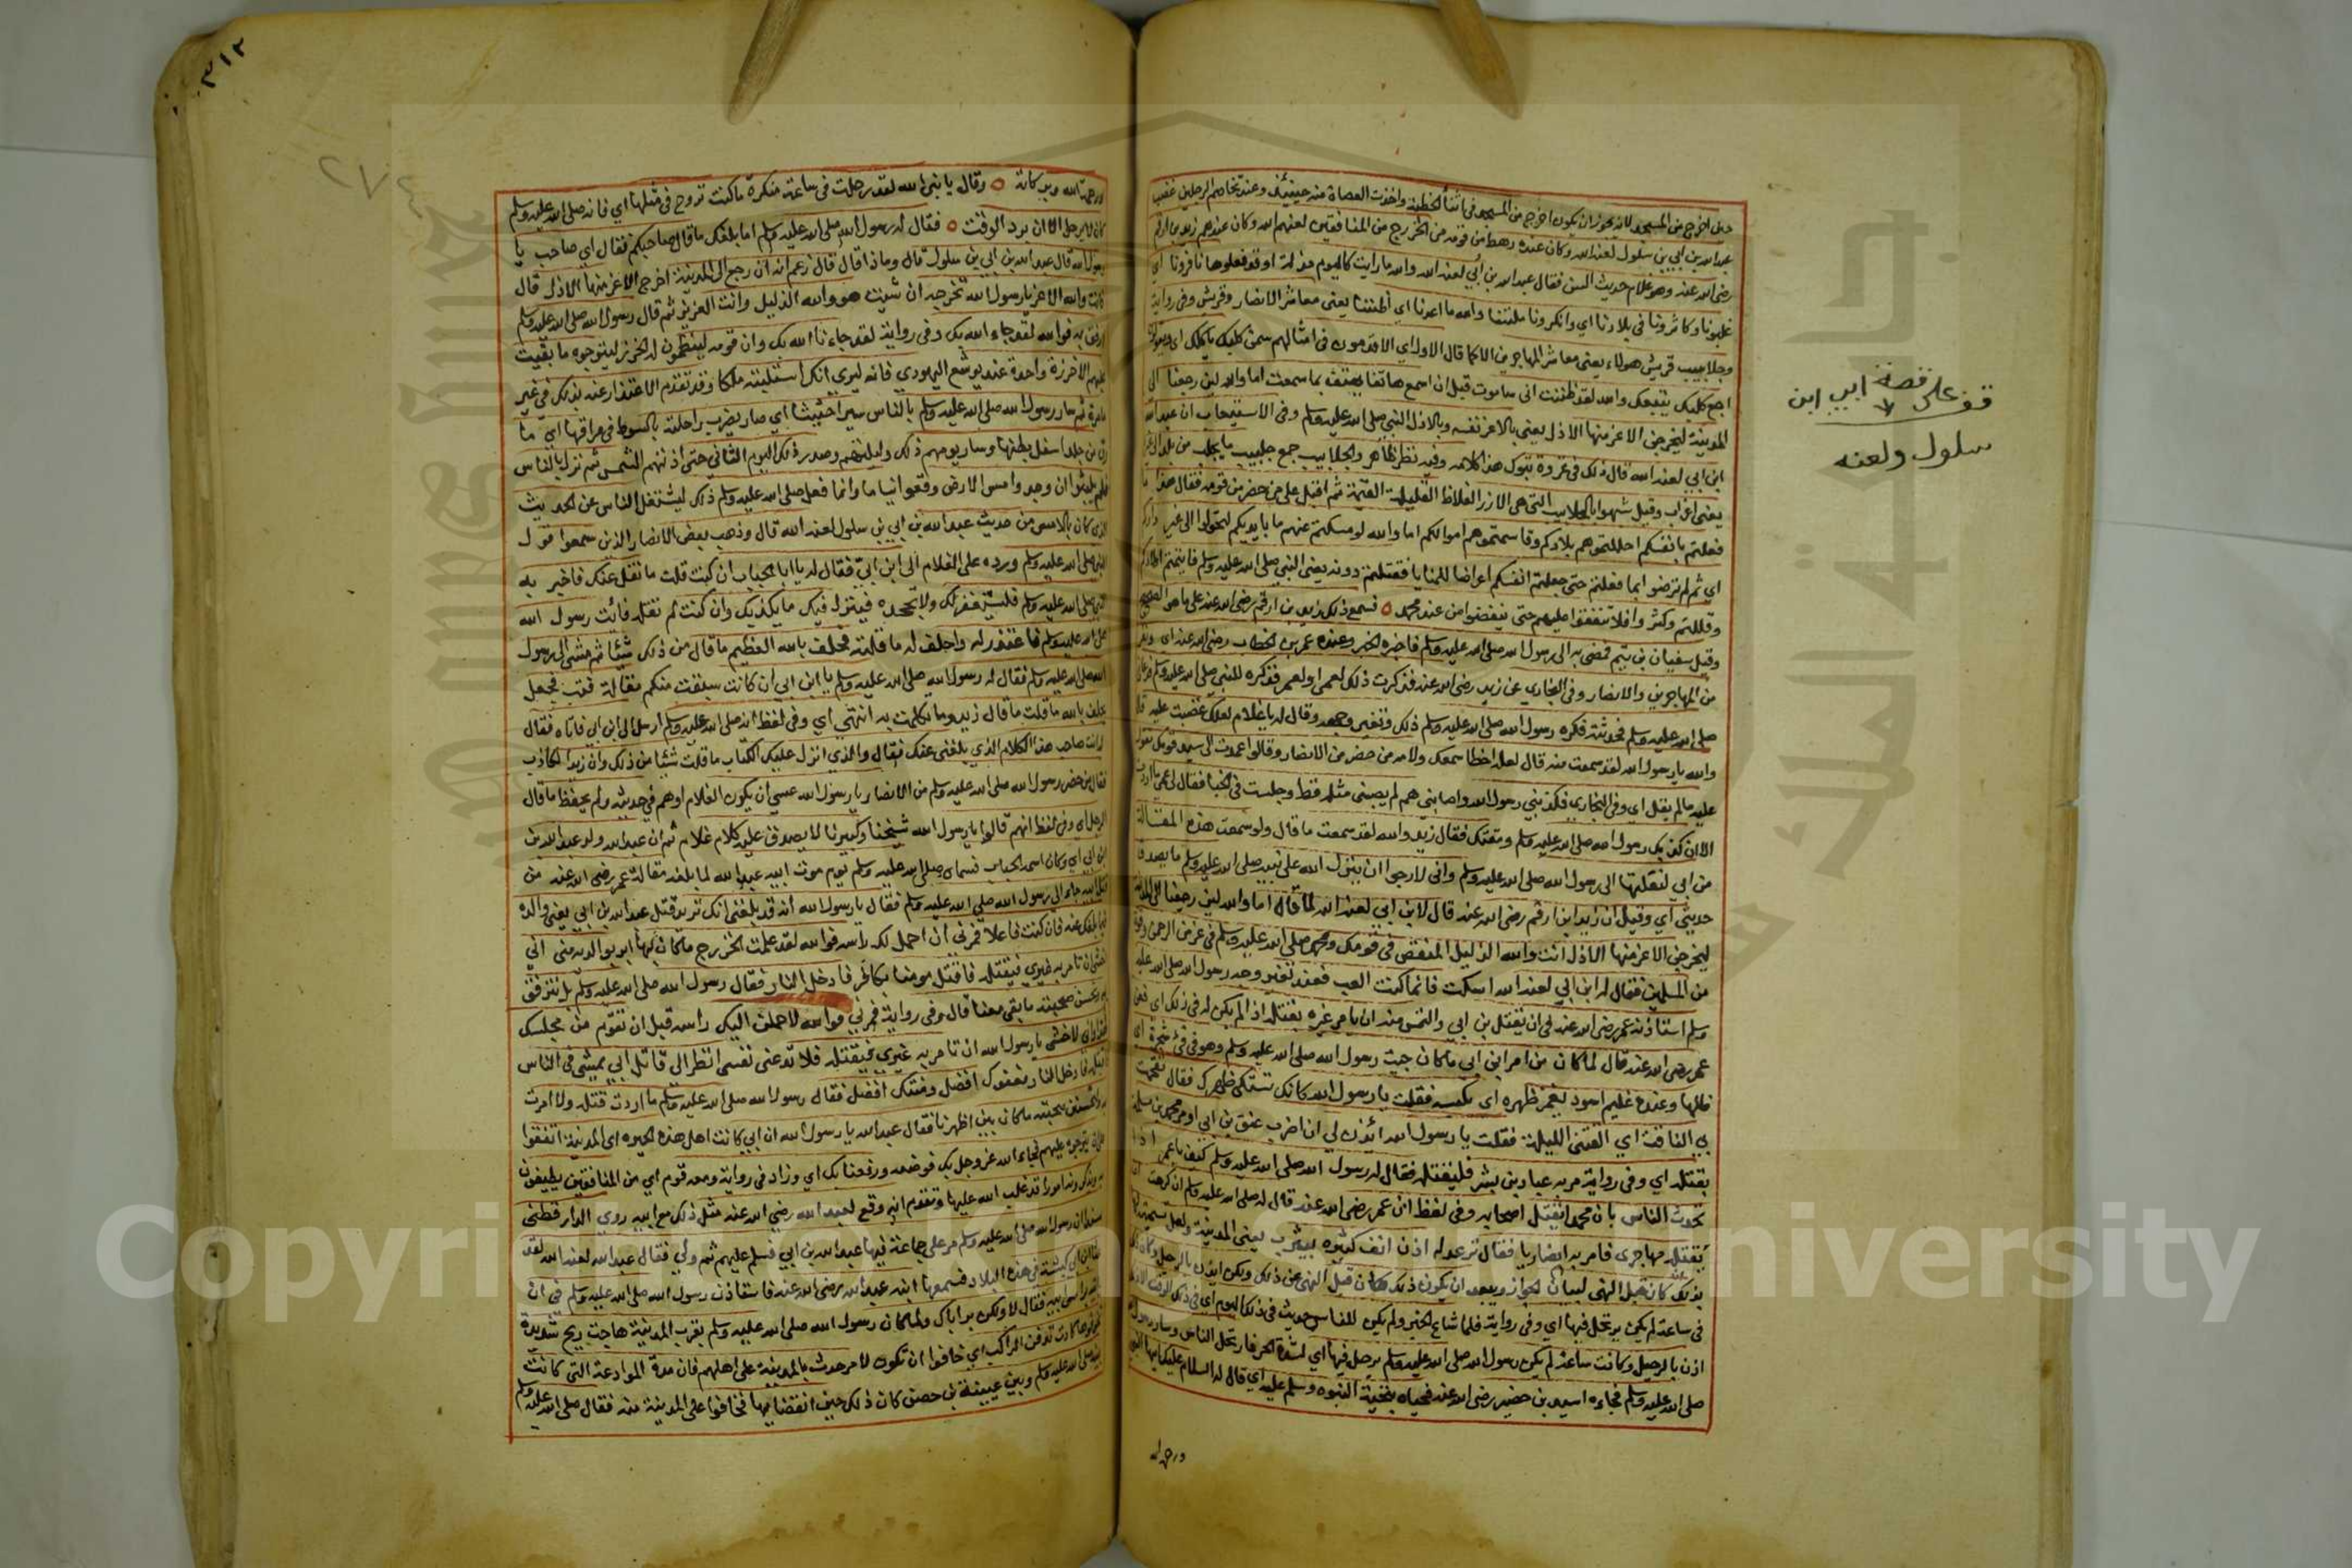 حين الخروج من المسجد لانه يجوز ان يكون اخرج من المسجد في اثنا الخطبة واخذت العصاة منه حينئذ وعند تخاصم الرجلين غضب
عبد الله بن ابي بن سلول لعنه الله وكان عنده رهط من قومه من الخزرج من المنافقين لعنهم الله وكان عندهم زيد بن ارقم
رضي الله عنه وهو غلام حديث السن فقال عبد الله بن أبي لعنه الله والله ما رايت كاليوم مذلة اوقد فعلوها نافرونا اي
غلبونا وكاثرونا في بلادنا اي وانكرونا ملتنا والله ما اعدنا اي اظننا يعني معاشر الانصار وقريش وفي رواية
وجلابيب قريش هولاء يعني معاشر المهاجرين الا كما قال الاول اي الاقدمون في امثالهم سمن كلبك ياكلك اي ويقولون
اجع كلبك يتبعك والله لقد ظننت اني ساموت قبل ان اسمع هاتفا يهتف بما سمعت اما والله لين رجعنا الى
المدينة ليخرجن الاعز منها الاذل يعني بالاعز نفسه وبالاذل النبي صلى الله عليه وسلم وفي الاستيعاب ان عبد الله
ابن ابي لعنه الله قال ذلك في غزوة تبوك هذا كلامه وفيه نظر ظاهر والجلابيب جمع جلبيب ما يجلب من بلد الى غيره
يعني اغراب وقيل شبهوا بالجلابيب التي هي الازر الغلاظ القليلة القيمة ثم اقبل على من حضر من قومه فقال هذا ما
فعلتم بانفسكم احللتموهم بلادكم وقاسمتموهم اموالكم اما والله لو مسكتم عنهم ما بايديكم لتحولوا الى غير داركم
اي ثم لم ترضوا بما فعلتم حتى جعلتم انفسكم اغراضا للمنايا فقتلتم دونه يعني النبي صلى الله عليه وسلم فايتمتم اولادكم
وقللتم وكثروا فلا تنفقوا عليهم حتى ينفضوا من عند محمد ٥ فسمع ذلك زيد بن ارقم رضي الله عنه على ما هو الصحيح
وقيل سفيان بن تيم فمضى به الى رسول الله صلى الله عليه وسلم فاخبره الخبر وعنده عمر بن الخطاب رضي الله عنه اي ونفر
من المهاجرين والانصار وفي البخاري عن زيد رضي الله عنه فذكرت ذلك لعمي او لعمر فذكره للنبي صلى الله عليه وسلم فدعاني
صلى الله عليه وسلم فحدثته فكره رسول الله صلى الله عليه وسلم ذلك وتغير وجهه وقال له يا غلام لعلك غضبت عليه قال
والله يا رسول الله لقد سمعت منه قال لعله اخطا سمعك ولامه من حضر من الانصار وقالوا عمدت الى سيد قومك تقول
عليه ما لم يقل اي وفي البخاري فكذبني رسول الله واصابني هم لم يصبني مثله قط وجلست في الخبا فقال لي عمي ما اردت
الا ان كذبك رسول الله صلى الله عليه وسلم ومقتك فقال زيد والله لقد سمعت ما قال ولو سمعت هذه المقالة
من ابي لنقلتها الى رسول الله صلى الله عليه وسلم واني لارجوا ان ينزل الله على نبيه صلى الله عليه وسلم ما يصدق
حديثي اي وقيل ان زيد ابن ارقم رضي الله عنه قال لابن ابي لعنه الله لما قال اما والله لين رجعنا الى المدينة
ليخرجن الاعز منها الاذل انت والله الذليل المنقص في قومك ومحمد صلى الله عليه وسلم في عز من الرحمن وقوة
من المسلمين فقال له ابن ابي لعنه الله اسكت فانما كنت العب فعند تغير وجه رسول الله صلى الله عليه
وسلم استاذنه عمر رضي الله عنه في ان يقتل بن ابي والتمس منه ان يامر غيره بقتله اذا لم يكن له في ذلك اي فعن
عمر رضي الله عنه قال لما كان من امر ابن ابي ما كان جيت رسول الله صلى الله عليه وسلم وهو في فئ شجرة اي
ظلها وعنده غليم اسود يغمز ظهره اي يكبسه فقلت يا رسول الله كانك تشتكي ظهرك فقال تقحمت
بي الناقة اي القتني الليلة فقلت يا رسول الله ائذن لي ان اضرب عنق بن ابي او مر محمد بن مسلمة
بقتله اي وفي رواية مر به عباد بن بشر فليقتله فقال له رسول الله صلى الله عليه وسلم كيف يا عمر اذا
تحدث الناس بان محمدا يقتل اصحابه وفي لفظ ان عمر رضي الله عنه قال له صلى الله عليه وسلم ان كرهت ان
يقتله مهاجري فامر به انصاريا فقال ترعد له اذن انف كثيره بيثرب يعني المدينة ولعل تسميتها
بذلك كان قبل النهي لبيان الجواز ويبعد ان يكون ذلك كان قبل النهي عن ذلك ولكن اذن بالرحيل وكان ذلك
في ساعة لم يكن يرتحل فيها اي وفي رواية فلما شاع الخبر ولم يكن للناس حديث في ذلك اليوم اي في ذلك الوقت الا ذلك
اذن بالرحيل وكانت ساعة لم يكن رسول الله صلى الله عليه وسلم يرحل فيها اي لشدة الحر فارتحل الناس وسار رسول الله
صلى الله عليه وسلم فجاءه اسيد بن حضير رضي الله عنه فحياه بتحية النبوه وسلم عليه اي قال له السلام عليك ايها النبي
ورحمة
قف على قصة ابي ابن
سلول ولعنه
٣١٢
٢٧٤
ورحمة الله وبركاته ٥ وقال يا نبي الله لقد رحلت في ساعة منكرة ما كنت تروح في مثلها اي فانه صلى الله عليه وسلم
كان لا يرحل الا ان برد الوقت ٥ فقال له رسول الله صلى الله عليه وسلم اما بلغك ما قال صاحبكم فقال اي صاحب يا
رسول الله قال عبد الله بن ابي بن سلول قال وماذا قال قال زعم انه ان رجع الى المدينة اخرج الاعز منها الاذل قال
فانت والله الاعز يا رسول الله تخرجه ان شيت هو والله الذليل وانت العزيز ثم قال رسول الله صلى الله عليه وسلم
ارفق به فوالله لقد جاء الله بك وفي رواية لقد جاءنا الله بك وان قومه لينظمون له الخرز ليتوجوه ما بقيت
عليهم الا خرزة واحدة عند يوشع اليهودي فانه ليرى انك استلبته ملكا وقد تقدم الاعتذار عنه بذلك في غير
مامرة ثم سار رسول الله صلى الله عليه وسلم بالناس سيرا حثيثا اي صار يضرب راحلته بالسوط في مراقها اي ما
رق من جلد اسفل بطنها وسار يومهم ذلك وليلتهم وصدر ذلك اليوم الثاني حتى اذتهم الشمس ثم نزل بالناس
فلم يلبثوا ان وجدوا مس الارض وقعوا نياما وانما فعل صلى الله عليه وسلم ذلك ليشتغل الناس عن الحديث
الذي كان بالامس من حديث عبد الله بن ابي بن سلول لعنه الله قال وذهب بعض الانصار الذين سمعوا قول
النبي صلى الله عليه وسلم ورده على الغلام الى ابن ابي فقال له يا ابا الحباب ان كنت قلت ما نقل عنك فاخبر به
النبي صلى الله عليه وسلم فليستغفر لك ولا تجحده فينزل فيك ما يكذبك وان كنت لم تقله فائت رسول الله
صلى الله عليه وسلم فاعتذر له واحلف له ما قلته فحلف بالله العظيم ما قال من ذلك شيئا ثم مشى الى رسول
الله صلى الله عليه وسلم فقال له رسول الله صلى الله عليه وسلم يا ابن ابي ان كانت سبقت منكم مقالة فتب فجعل
يحلف بالله ما قلت ما قال زيد وما تكلمت به انتهى اي وفي لفظ انه صلى الله عليه وسلم ارسل الى ابن ابي فاتاه فقال
انت صاحب هذا الكلام الذي بلغني عنك فقال والذي انزل عليك الكتاب ما قلت شئيا من ذلك وان زيدا لكاذب
فقال من حضر رسول الله صلى الله عليه وسلم من الانصار يا رسول الله عسى ان يكون الغلام اوهم في حديثه ولم يحفظ ما قال
الرجل اي وفي لفظ انهم قالوا يا رسول الله شيخنا وكبيرنا لا يصدق عليه كلام غلام ثم ان عبد الله ولد عبد الله بن
ابن ابي اي وكان اسمه الحباب فسماه صلى الله عليه وسلم يوم موت ابيه عبد الله لما بلغه مقالة عمر رضي الله عنه من
قتل ابيه جاء الى رسول الله صلى الله عليه وسلم فقال يا رسول الله انه قد بلغني انك تريد قتل عبد الله بن ابي يعني والده
فيما بلغك عنه فان كنت فاعلا فمرني ان احمل لك راسه فوالله لقد علمت الخزرج ما كان بها ابر بوالديه مني اني
اخشى ان تامر به غيري فيقتله فاقتل مومنا بكافر فادخل النار فقال رسول الله صلى الله عليه وسلم بل نترفق
به ونحسن صحبته ما بقي معنا قال وفي رواية فمرني فوالله لاحملن اليك راسه قبل ان تقوم من مجلسك
هذا واني لاخشى يا رسول الله ان تامر به غيري فيقتله فلا تدعني نفسي انظر الى قاتل ابي يمشي في الناس
فاقتله فادخل النار بعفوك افضل ومنتك افضل فقال رسول الله صلى الله عليه وسلم ما اردت قتله ولا امرت
به ولنحسنن صحبته ما كان بين اظهرنا فقال عبد الله يا رسول الله ان ابي كانت اهل هذه البحيره اي المدينة اتفقوا
على ان يتوجوه عليهم فجاء الله عز وجل بك فوضعه ورفعنا بك اي وزاد في رواية ومعه قوم اي من المنافقين يطيفون
به ويذكرونه امورا قد غلب الله عليها وتقدم انه وقع لعبد الله رضي الله عنه مثل ذلك مع ابيه روى الدارقطني
مسندا ان رسول الله صلى الله عليه وسلم مر على جماعة فيها عبد الله بن ابي فسلم عليهم ثم ولى فقال عبد الله لعنه الله لقد
عثا ابن ابي كبشة في هذه البلاد فسمعها ابنه عبد الله رضي الله عنه فاستاذن رسول الله صلى الله عليه وسلم في ان
ياتيه براس ابيه فقال لا ولكن بر اباك ولما كان رسول الله صلى الله عليه وسلم بقرب المدينة هاجت ريح شديدة
كادت تدفن الراكب اي خافوا ان تكون لامر حدث بالمدينة على اهلهم فان مدة الموادعة التي كانت
بينه صلى الله عليه وسلم وبين عيينة بن حصن كان ذلك حين انقضايها فخافوا على المدينة منه فقال صلى الله عليه وسلم
Copyright © King Saud University
جامعة الملك سعود